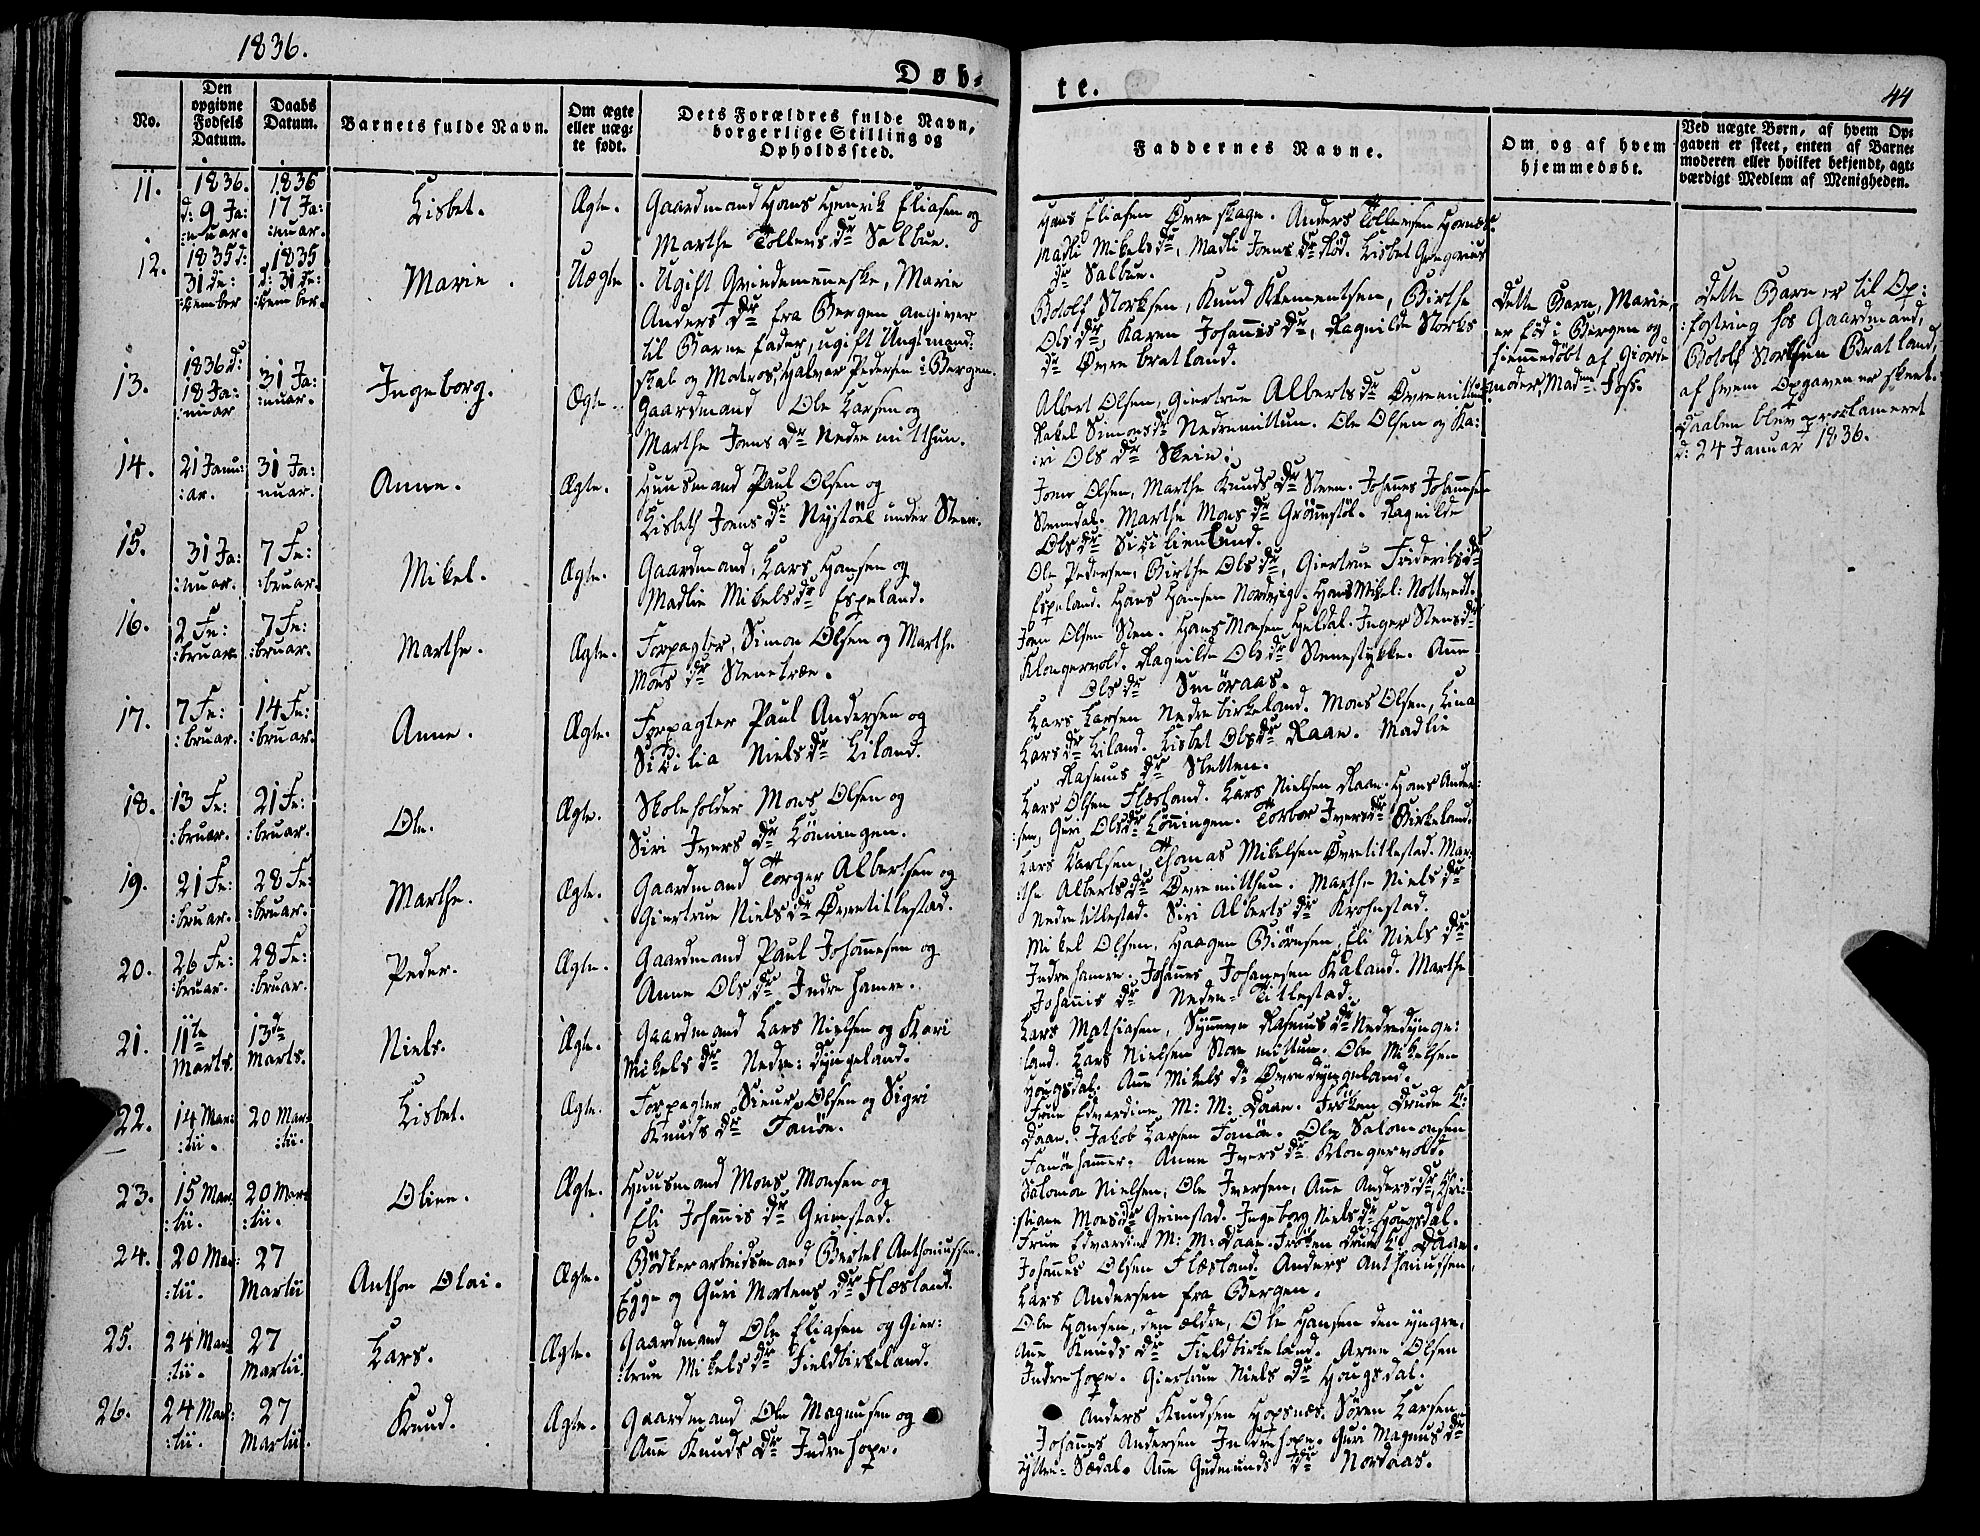 1836.
Døb-
te.
44
No.
Den opgivne Fødsels Datum.
Daabs Datum.
Barnets fulde Navn.
Om ægte eller uæg-te født.
Dets Forældres fulde Navn, borgerlige Stilling og Opholdssted.
Faddernes Navne.
Om og af hvem hjemmedøbt.
Ved uægte Børn, af hvem Op-gaven er skeet, enten af Barne-moderen eller hvilket bekjendt, agt-værdigt Medlem af Menigheden.
11.
1836. d: 9 Ja: :nuar.
1836 17 Ja: :nuar.
Lisbet.
Ægte.
Gaardmand Hans Henrik Eliasen og
Marthe Tollens Dr Salbue.
Hans Eliasen Øvre skage. Anders Tollevsen Hornæs.
Madli Mikels dr, Madli Joens dr Rød. Lisbet Gregorius
dr Salbue.
12.
1835 d: 31 De: :cember
1835 d: 31 De: :cember.
Marie.
Uægte
Ugift Qvindemenneske, Marie
Anders Dr fra Bergen angiver
til Barne fader, ugift Ungtmand:
skal og Matros, Halvor Pedersen i Bergen.
Botolf Storksen, Knud Klementsen, Birthe
Ols dr, Karen Johannis dr, Ragnilde Storks
dr Øvre bratland.
Dette Barn, Marie,
er fød i Bergen og
hjemmedøbt af Giorde
moder, Madme Foss.
Dette Barn er til Op:
:fostring hos Gaardmand,
Botolf Storksen Bratland,
af hvem Opgaven er skeet.
Daaben blev proclameret
d: 24 Januar 1836.
13.
1836 d: 18 Ja: :nuar
31 Ja: :nuar.
Ingeborg.
Ægte.
Gaardmand Ole Larsen og
Marthe Joens Dr Nedre mitthun.
Albert Olsen, Giertrue Alberts dr Øvremitthun
Rakel Simons dr Nedremittun. Ole Olsen og Ka:
:ri Ols dr Skein.
14.
21 Janu: :ar.
31 Ja: nuar.
Anne.
Ægte.
Huusmand Paul Olsen og
Lisbeth Joens Dr Nystöel under Steen.
Joen Olsen, Marthe Knuds Dr Steen. Johannes Johannesen
Steendal. Marthe Mons dr Grönnestöl. Ragnilde
Ols dr Sicilienlund.
15.
31 Ja: :nuar.
7 Fe: :bruar.
Mikel.
Ægte.
Gaardmand, Lars Hansen og
Madlie Mikels dr Espeland.
Ole Pedersen, Birthe Ols dr, Giertrue Frideriks dr
Espeland. Hans Hansen Nordvig. Hans Mikel: Nottvedt.
16.
2 Fe: :bruar.
7 Fe: :bruar.
Marthe.
Ægte.
Forpagter, Simon Olsen og Marthe
Mons dr Stenetræe.
Joen Olsen Sten. Hans Monsen Heldal. Inger Stens dr
Klongervold. Ragnilde Ols dr Stenestykke. Anne
Ols dr Smöraas.
17.
7 Fe: :bruar.
14 Fe: :bruar.
Anne.
Ægte.
Forpagter Paul Andersen og
Sicilia Niels dr Liland.
Lars Larsen Nedre birkeland. Mons Olsen, Lina
Lars dr Liland. Lisbet Ols dr Raae. Madlie
Rasmus dr Sletten.
18.
13 Fe: :bruar.
21 Fe: :bruar.
Ole.
Ægte.
Skoleholder Mons Olsen og
Siri Ivers dr Lönningen.
Lars Olsen Flæsland. Lars Nielsen Raae. Hans Ander:
:sen, Guri Ols dr Lönningen. Torbor Ivers dr Birkeland.
19.
21 Fe: :bruar.
28 Fe: :bruar.
Marthe.
Ægte.
Gaardmand Torger Albertsen og
Giertrue Niels dr Øvretitlestad.
Lars Karlsen, Thomas Mikelsen Øvretitlestad. Mar:
:the Alberts dr Øvremitthun. Marthe Niels dr
Nedretitlestad. Siri Alberts dr Krohnstad.
20.
26 Fe: :bruar.
28 Fe: :bruar.
Peder.
Ægte.
Gaardmand Paul Johannesen og
Anne Ols dr Indre hamre.
Mikel Olsen, Haagen Biörnsen, Eli Niels dr
Indre hamre. Johannes Johannesen Raaland. Marthe
Johannis dr Nedre-Titlestad.
21.
11te Marts.
13de Marts.
Niels.
Ægte.
Gaardmand Lars Nielsen og Kari
Mikels dr Nedre: dyngeland.
Lars Mathiasen, Synneve Rasmus dr Nedredynge:
:land. Lars Nielsen Store mittun. Ole Mikelsen
Hougsdal. Anne Mikels dr Øvredyngeland.
22.
14 Mar: :tii.
20 Mar: :tii.
Lisbet.
Ægte.
Forpagter Sieur Olsen og Sigri
Knuds dr Fanöe.
Frue Edvardine M: M: Daae. Fröken Drude L:
Daae. Jakob Larsen Fanöe. Ole Salomonsen
Fanöehammer. Anne Ivers dr Klongervold.
23.
15 Mar: :tii.
20 Mar: :tii.
Oline.
Ægte.
Huusmand Mons Monsen og
Eli Johannis dr Grimstad.
Salomon Nielsen, Ole Iversen, Anne Anders dr, Chri:
:stiane Mons dr Grimstad. Ingeborg Niels dr Hougsdal.
24.
20 Mar: :tii.
27 Martii
Anthon Olai.
Ægte.
Bödkerarbeidsmand Bertel Anthoniussen
Egge og Guri Mortens dr Flæsland.
Frue Edvardine M: M: Daae. Fröken Drude L: Daae.
Johannes Olsen Flæsland. Anders Anthoniussen,
Lars Andersen fra Bergen.
25.
24 Mar: tii.
27 Martii.
Lars.
Ægte.
Gaardmand Ole Eliasen og Gier:
:true Mikels dr Fieldbirkeland.
Ole Hansen, den ældre, Ole Hansen den yngre,
Anne Knuds dr Fieldbirkeland. Arne Olsen
Indre hope. Giertrue Niels dr Hougsdal.
26.
24 Mar: :tii.
27 Martii.
Knud.
Ægte.
Gaardmand Ole Magnusen og
Anne Knuds dr Indre hope.
Anders Knudsen Hopsnæs. Sören Larsen,
Johannes Andersen Indre hope. Guri Magnus dr
Ytter-Sædal. Anne Gudmunds dr Nordaas.